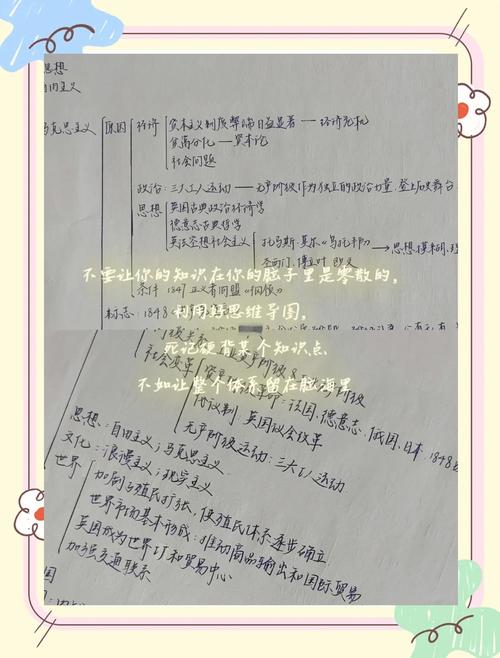 思想
自由主义
马克思主义 原因 经济 资本主义制度弊端日益显著——经济危机
贫富分化——资本论
社会问题
政治:三大工人运动——无产阶级作为独立的政治力量,登上历史舞台
思想 英国古典政治经济学
德意志古典哲学
英法空想社会主义 托马斯·莫尔《乌托邦》→思想
圣西门、傅立叶、欧文
不要让你的知识在你的脑子里是零散的,
条件 1847
利用好思维导图,
标志:1848
死记硬背某个知识点
社会变革
不如让整个体系留在脑海里
法国、德意志、俄国、日本、1848
代议制 英国议会改革
无产阶级运动:三大工人运动
思想:自由主义;马克思主义
文化:浪漫主义;现实主义
世界 加剧了殖民扩张,使殖民体系逐步确立
世界市场基本形成:推动商品输出和国际贸易
英国成为世界工厂和贸易中心
加强交通联系
国